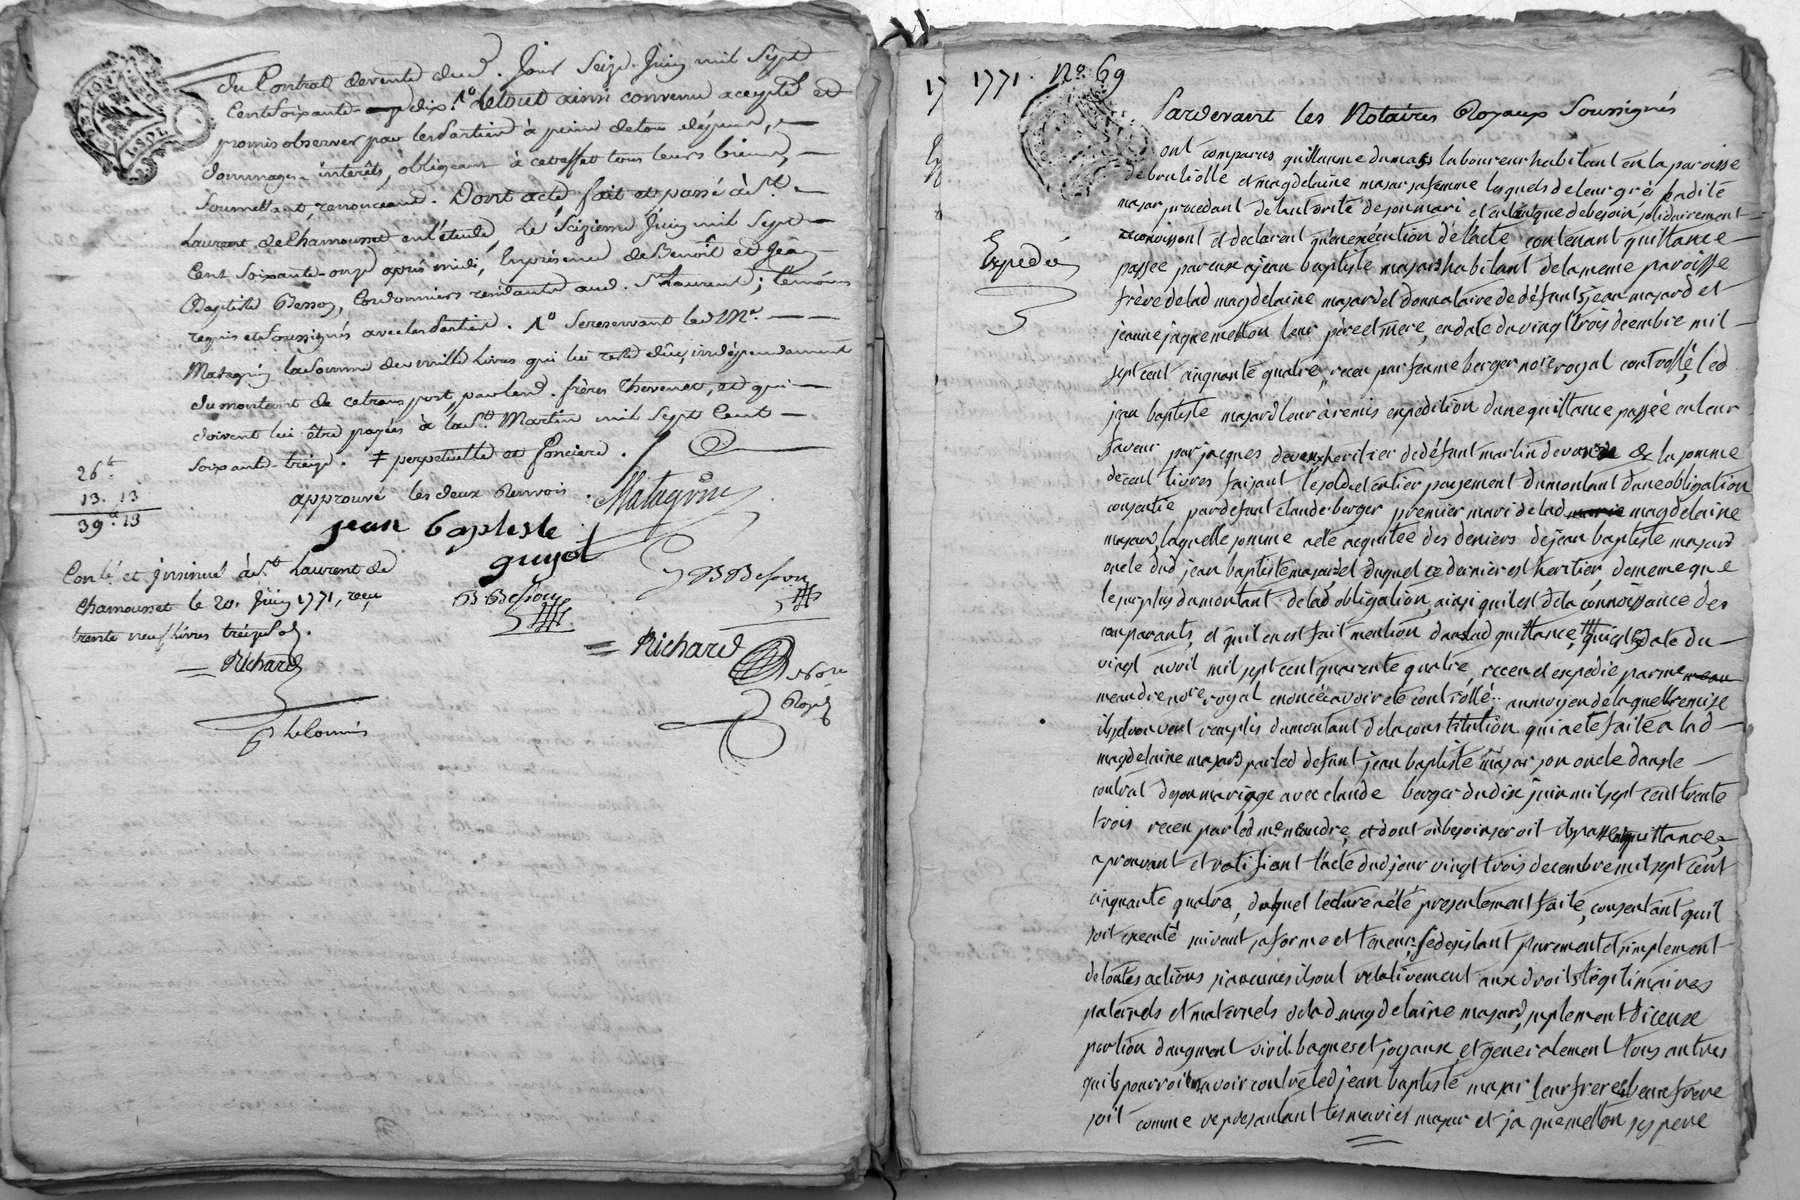 du Contrat de vente dud. Jour Seize Juin mil Sept
Cent Soixante dix. 1º Le tout ainsi convenu accepté et
promis observer par les Parties à peine de tous dépens, —
dommages intérêts, obligeant à cet effet tous leurs biens, —
Soumettant, renonceant. Dont acte, fait et passé à St. —
Laurent de Chamousset en l'étude, le Seizieme Juin mil Sept —
Cent Soixante-onze après midi, En présence de Benoît et Jean
Baptiste Besson, Cordonniers residants aud. St Laurent; témoins
requis et Soussignés avec les Parties. 1º Se reservant led. Me. — —
Matagrin la Somme de mille livres qui lui reste dûe, indépendament
du montant de ce transport, par lesd. frères Thevenet, et qui —
doivent lui être payés à la St. Martin mil Sept Cent —
Soixante-treize. ‡ perpetuelle et fonciere.
approuvé les deux Renvois. Matagrin
26 tt
13. 13
39 tt 13
jean baptiste
guyot
B Besson
JB Besson
Conlé et insinué à St. Laurent de
Chamousset le 20. Juin 1771, reçu
trente neuf livres treize sols.
= Richard
= Richard
Nore
Royal
17
1771. No. 69
Expedié
Pardevant les Notaires Royaux Soussignés
ont comparus guillaume dumas laboureur habitant en la paroisse
de brulliolle et magdelaine majar sa femme lesquels de leur gré, ladite
majar procedant de l'autorité de son mari et en tant que de besoin, solidairement —
reconnoissent et declarent qu'en execution de l'acte contenant quittance —
passée par eux a jean baptiste majard habitant de la meme paroisse
frère de lad magdelaine majard et donnataire de défunts jean majard et
jeanne jaquemetton leur père et mere, en date du vingt trois decembre mil —
sept cent cinquante quatre, receu par ferme berger nore royal controllé, led
jean baptiste majard leur à remis expedition d'une quittance passée en leur
faveur par jacques devaux heritier de défunt martin devaux de la somme
de cent livres faisant le solde et entier payement du montant d'une obligation
consentie par defunt claude berger premier mari de lad marie magdelaine
majard, laquelle somme a été acquitée des deniers de jean baptiste majard
oncle dud jean baptiste majard, et duquel ce dernier est heritier, de meme que
le surplus du montant de lad obligation, ainsi qu'il est de la connoissance des
comparants, et qu'il en est fait mention dans lad quittance, qui est de date du —
vingt avril mil sept cent quarente quatre, receu et expedie par me
meandre nore royal enoncée avoir été controllé; au moyen de laquelle remise
ils se trouvent remplis du montant de la constitution qui a eté faite a lad —
magdelaine majard par led defunt jean baptiste majar son oncle dans le —
contrat de son mariage avec claude berger du dix juin mil sept cent trente
trois receu par led me meandre, et dont où besoin seroit ils passent quittance,
aprouvant et ratifiant l'acte dud jour vingt trois decembre mil sept cent
cinquante quatre, duquel lecture a été presentement faite, consentant qu'il
soit executé suivant sa forme et teneur, se desistant purement et simplement
de toutes actions si aucunes ils ont relativement aux droits légitimaires
paternels et maternels de lad magdelaine majard, suplement d'iceux
portion d'augment, vivil bagues et joyaux, et generalement tous autres
qu'ils pourroient avoir contre led jean baptiste majar leur frere et beau frere
soit comme representant les mariés majar et jaquemetton ses pere